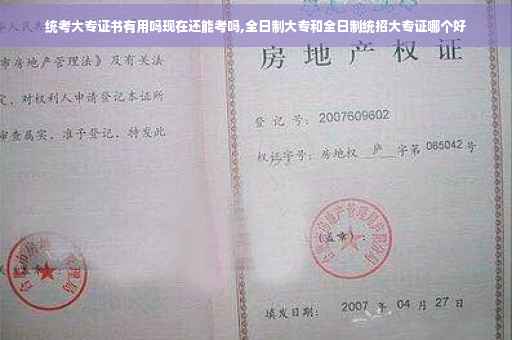 统考大专证书有用吗现在还能考吗,全日制大专和全日制统招大专证哪个好
华人民共
市房地产管理法》及有关法
定，对权利人申请登记本证所
审查属实，准予登记，特发此
房地产权
登记号：2007609602
权证字号：房地权 庐 字第 085042 号
(盖章)：
填发日期：2007 年 04 月 27 日